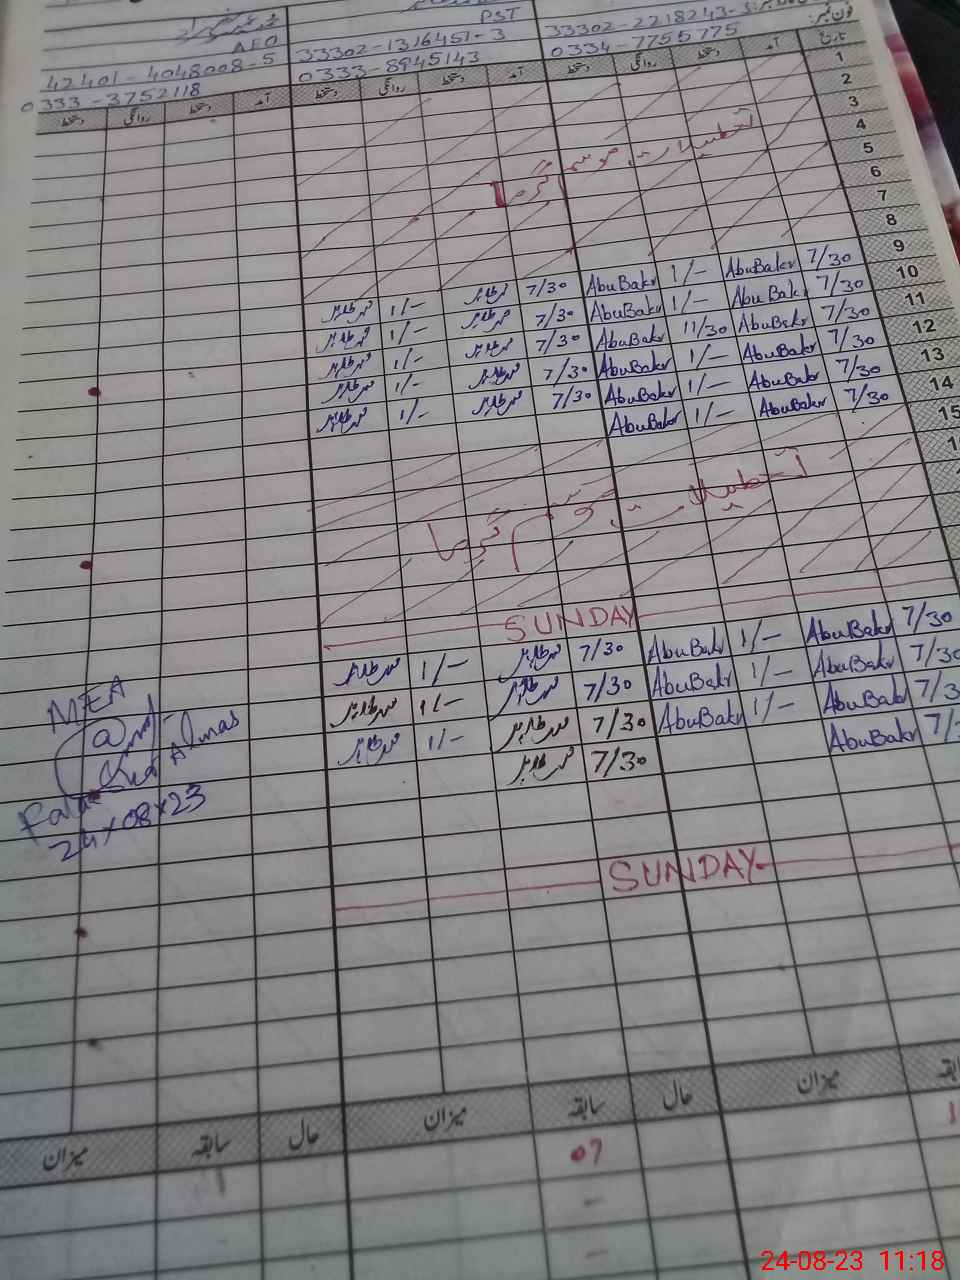 AEO
PST
42401-4048008-5
33302-1316451-3
33302-2218243-3
فون نمبر:
0333-3752118
0333-8945143
0334-7755775
دستخط روانگی دستخط آمد دستخط روانگی دستخط آمد دستخط روانگی دستخط آمد تاریخ
1
2
3
4
تعطیلات موسم گرما
5
6
7
8
9
محمد طاہر 1/- محمد طاہر 7/30 AbuBakr 1/- AbuBakr 7/30 10
محمد طاہر 1/- محمد طاہر 7/30 AbuBakr 1/- AbuBakr 7/30 11
محمد طاہر 1/- محمد طاہر 7/30 AbuBakr 11/30 AbuBakr 7/30 12
محمد طاہر 1/- محمد طاہر 7/30 AbuBakr 1/- AbuBakr 7/30 13
محمد طاہر 1/- محمد طاہر 7/30 AbuBakr 1/- AbuBakr 7/30 14
AbuBakr 1/- AbuBakr 7/30 15
تعطیلات موسم گرما
SUNDAY
محمد طاہر 1/- محمد طاہر 7/30 AbuBakr 1/- AbuBakr 7/30
محمد طاہر 1/- محمد طاہر 7/30 AbuBakr 1/- AbuBakr 7/30
محمد طاہر 1/- محمد طاہر 7/30 AbuBakr 1/- AbuBakr 7/30
محمد طاہر 7/30 AbuBakr
MEA
Almas
24x08x23
SUNDAY
میزان سابقہ حال میزان سابقہ حال میزان
07
24-08-23 11:18